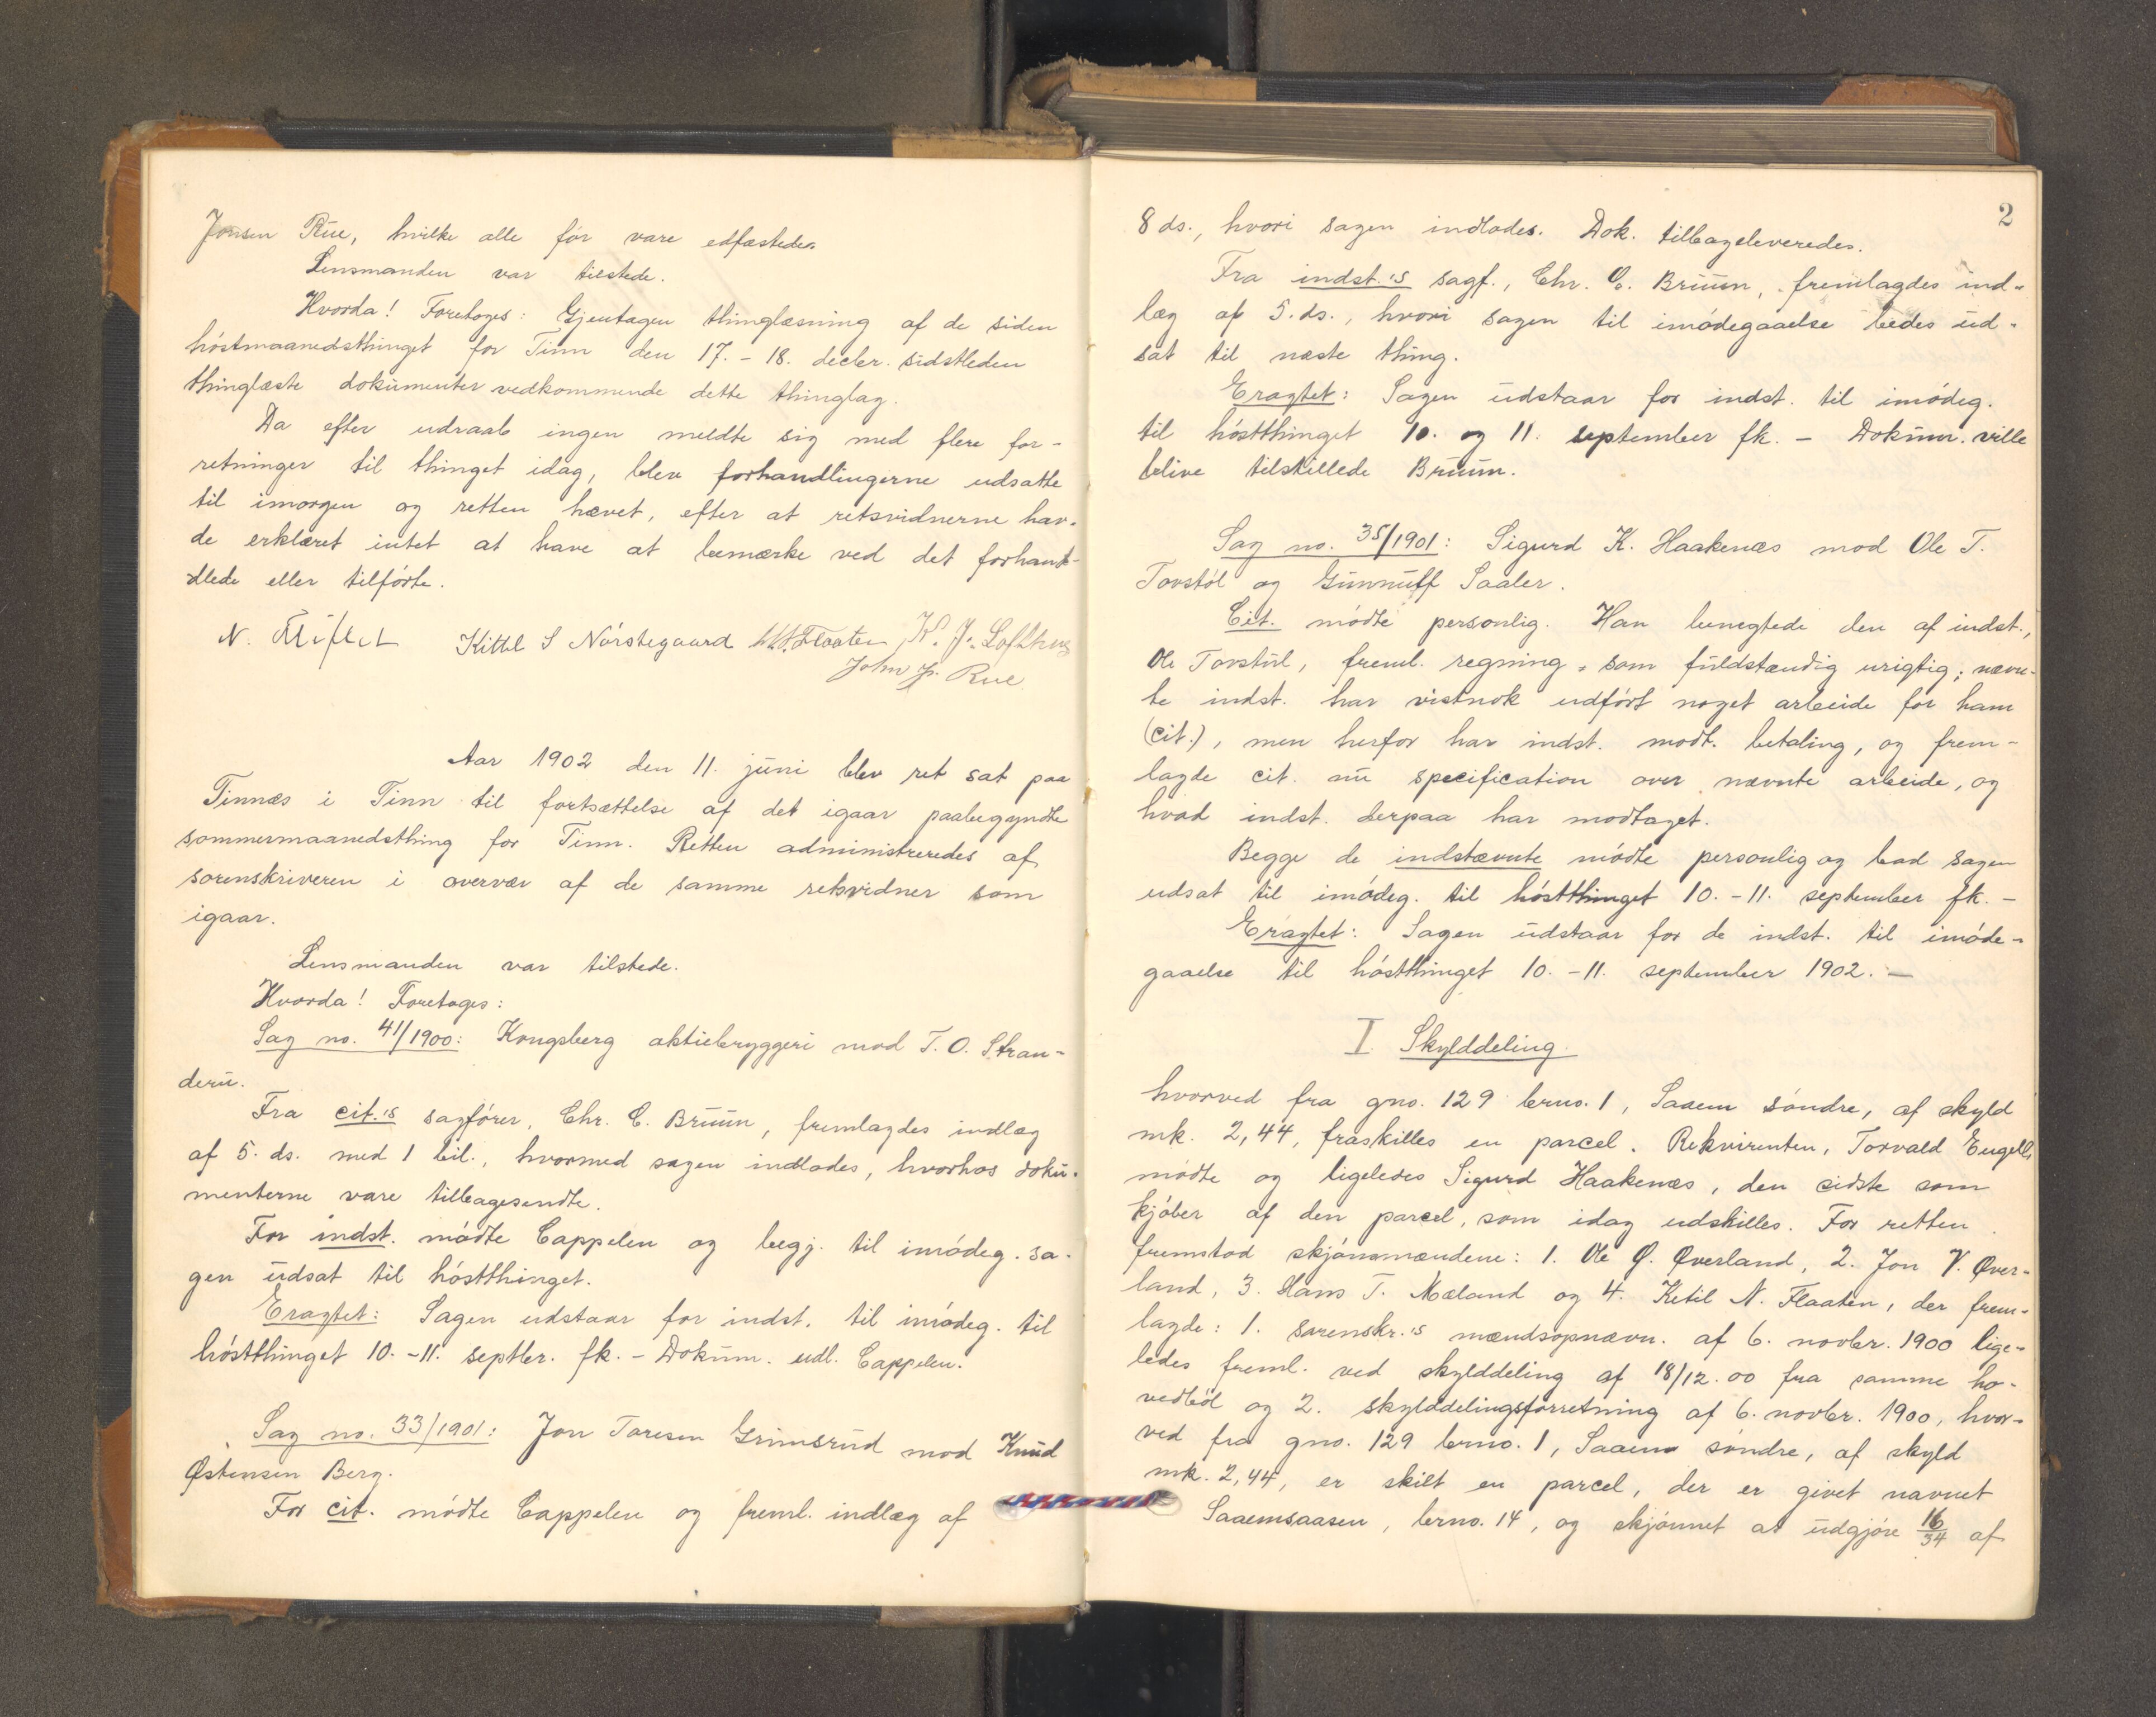 Jonsen Rue, hvilke alle før vare edfæstede.
Lensmanden var tilstede.
Hvorda! Foretoges: Gjentagen thinglæsning af de siden
høstmaanedsthinget for Tinn den 17.-18. decbr. sidstleden
thinglæste dokumenter vedkommende dette thinglag.
Da efter udraab ingen meldte sig med flere for-
retninger til thinget idag, blev forhandlingerne udsatte
til imorgen og retten hævet, efter at retsvidnerne hav-
de erklæret intet at have at bemærke ved det forhand-
dlede eller tilførte.
N. Kittel S Nørstegaard Flaaten K. J. Lofthus
John J. Rue
Aar 1902 den 11. juni blev ret sat paa
Tinnæs i Tinn til fortsættelse af det igaar paabegyndte
sommermaanedsthing for Tinn. Retten administreredes af
sorenskriveren i overvær af de samme retsvidner som
igaar.
Lensmanden var tilstede.
Hvorda! Foretoges:
Sag no. 41/1900: Kongsberg aktiebryggeri mod T. O. Stran-
deru.
Fra cit.'s sagfører, Chr. C. Bruun, fremlagdes indlæg
af 5. ds. med 1 bil., hvormed sagen indlodes, hvorhos doku-
menterne vare tilbagesendte.
For indst. mødte Cappelen og begj. til imødeg. sa-
gen udsat til høstthinget.
Eragtet: Sagen udstaar for indst. til imødeg. til
høstthinget 10.-11. septbr. fk. - Dokum. udl. Cappelen.
Sag no. 33/1901: Jon Toresen Grimsrud mod Knud
Østensen Berg.
For cit. mødte Cappelen og freml. indlæg af
2
8 ds., hvori sagen indlodes. Dok. tilbageleveredes.
Fra indst.'s sagf., Chr. C. Bruun, fremlagdes ind-
læg af 5. ds., hvori sagen til imødegaaelse bedes ud-
sat til næste thing.
Eragtet: Sagen udstaar for indst. til imødeg.
til høstthinget 10. og 11. september fk. - Dokum. ville
blive tilstillede Bruun.
Sag no. 35/1901: Sigurd K. Haakenæs mod Ole T.
Torstøl og Gunnuff Saaler.
Cit. mødte personlig. Han benegtede den af indst.,
Ole Torstul, freml. regning, som fuldstændig urigtig; nævn-
te indst. har vistnok udført noget arbeide for ham
(cit.), men herfor har indst. modt. betaling, og frem-
lagde cit. nu specification over nævnte arbeide, og
hvad indst. derpaa har modtaget.
Begge de indstævnte mødte personlig og bad sagen
udsat til imødeg. til høstthinget 10.-11. september fk. -
Eragtet: Sagen udstaar for de indst. til imøde-
gaaelse til høstthinget 10.-11. september 1902. -
I. Skylddeling
hvorved fra gno. 129 brno. 1, Saaem søndre, af skyld
mk. 2,44, fraskilles en parcel. Rekvirenten, Torvald Engell,
mødte og ligeledes Sigurd Haakenæs, den sidste som
kjøber af den parcel, som idag udskilles. For retten
fremstod skjønsmændene: 1. Ole G. Øverland, 2. Jon V. Øver-
land, 3. Hans T. Mæland og 4. Ketil N. Flaaten, der frem-
lagde: 1. sorenskr.'s mændsopnævn. af 6. novbr. 1900 lige-
ledes freml. ved skylddeling af 18/12.00 fra samme ho-
vedbøl og 2. skylddelingsforretning af 6. novbr. 1900, hvor-
ved fra gno. 129 brno. 1, Saaem søndre, af skyld
mk. 2,44, er skilt en parcel, der er givet navnet
Saaemsaasen, brno. 14, og skjønnet at udgjøre 16/34 af